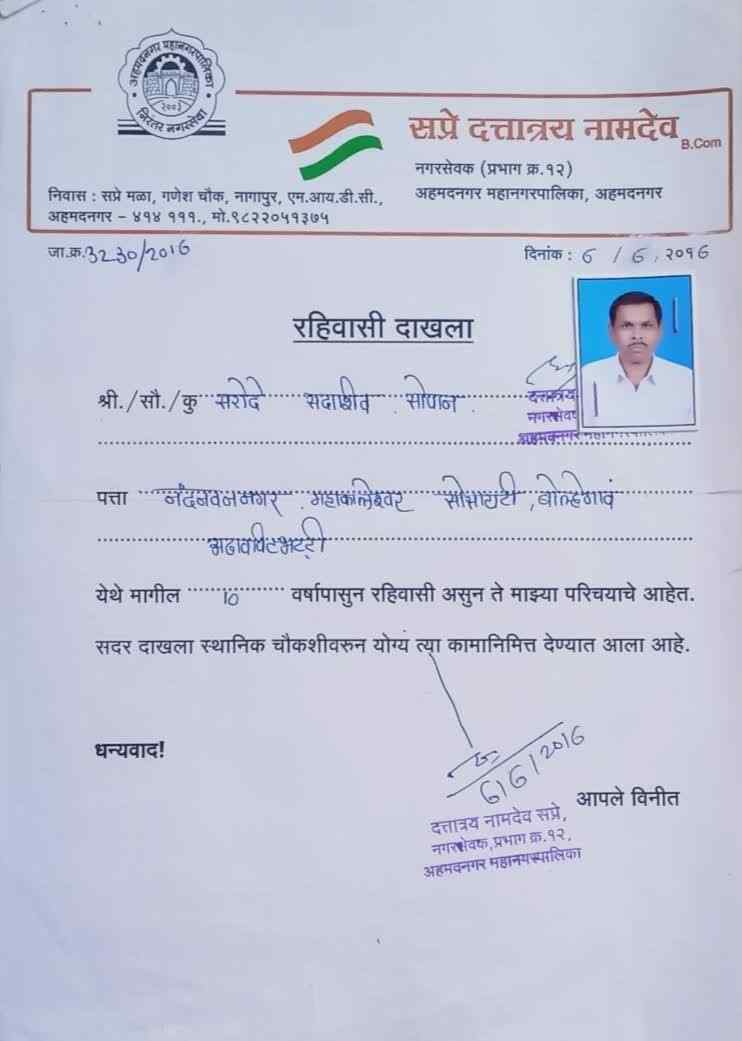 अहमदनगर महानगरपालिका
२००३
निरंतर नगरसेवा
सप्रे दत्तात्रय नामदेव B.Com
नगरसेवक (प्रभाग क्र.१२)
अहमदनगर महानगरपालिका, अहमदनगर
निवास : सप्रे मळा, गणेश चौक, नागापुर, एम.आय.डी.सी.,
अहमदनगर – ४१४ १११., मो.९८२२०५१३७५
जा.क्र.3230/2016
दिनांक : 6 / 6 / २०१6
रहिवासी दाखला
श्री./सौ./कु सरोदे सदाशिव सोपान
दत्तात्रय
नगरसेवक
अहमदनगर
पत्ता नंदनवन नगर, महाकालेश्वर सोसायटी, बोल्हेगाव
येथे मागील 10 वर्षापासुन रहिवासी असुन ते माझ्या परिचयाचे आहेत.
सदर दाखला स्थानिक चौकशीवरुन योग्य त्या कामानिमित्त देण्यात आला आहे.
धन्यवाद!
6/6/2016
आपले विनीत
दत्तात्रय नामदेव सप्रे,
नगरसेवक, प्रभाग क्र.१२,
अहमदनगर महानगरपालिका